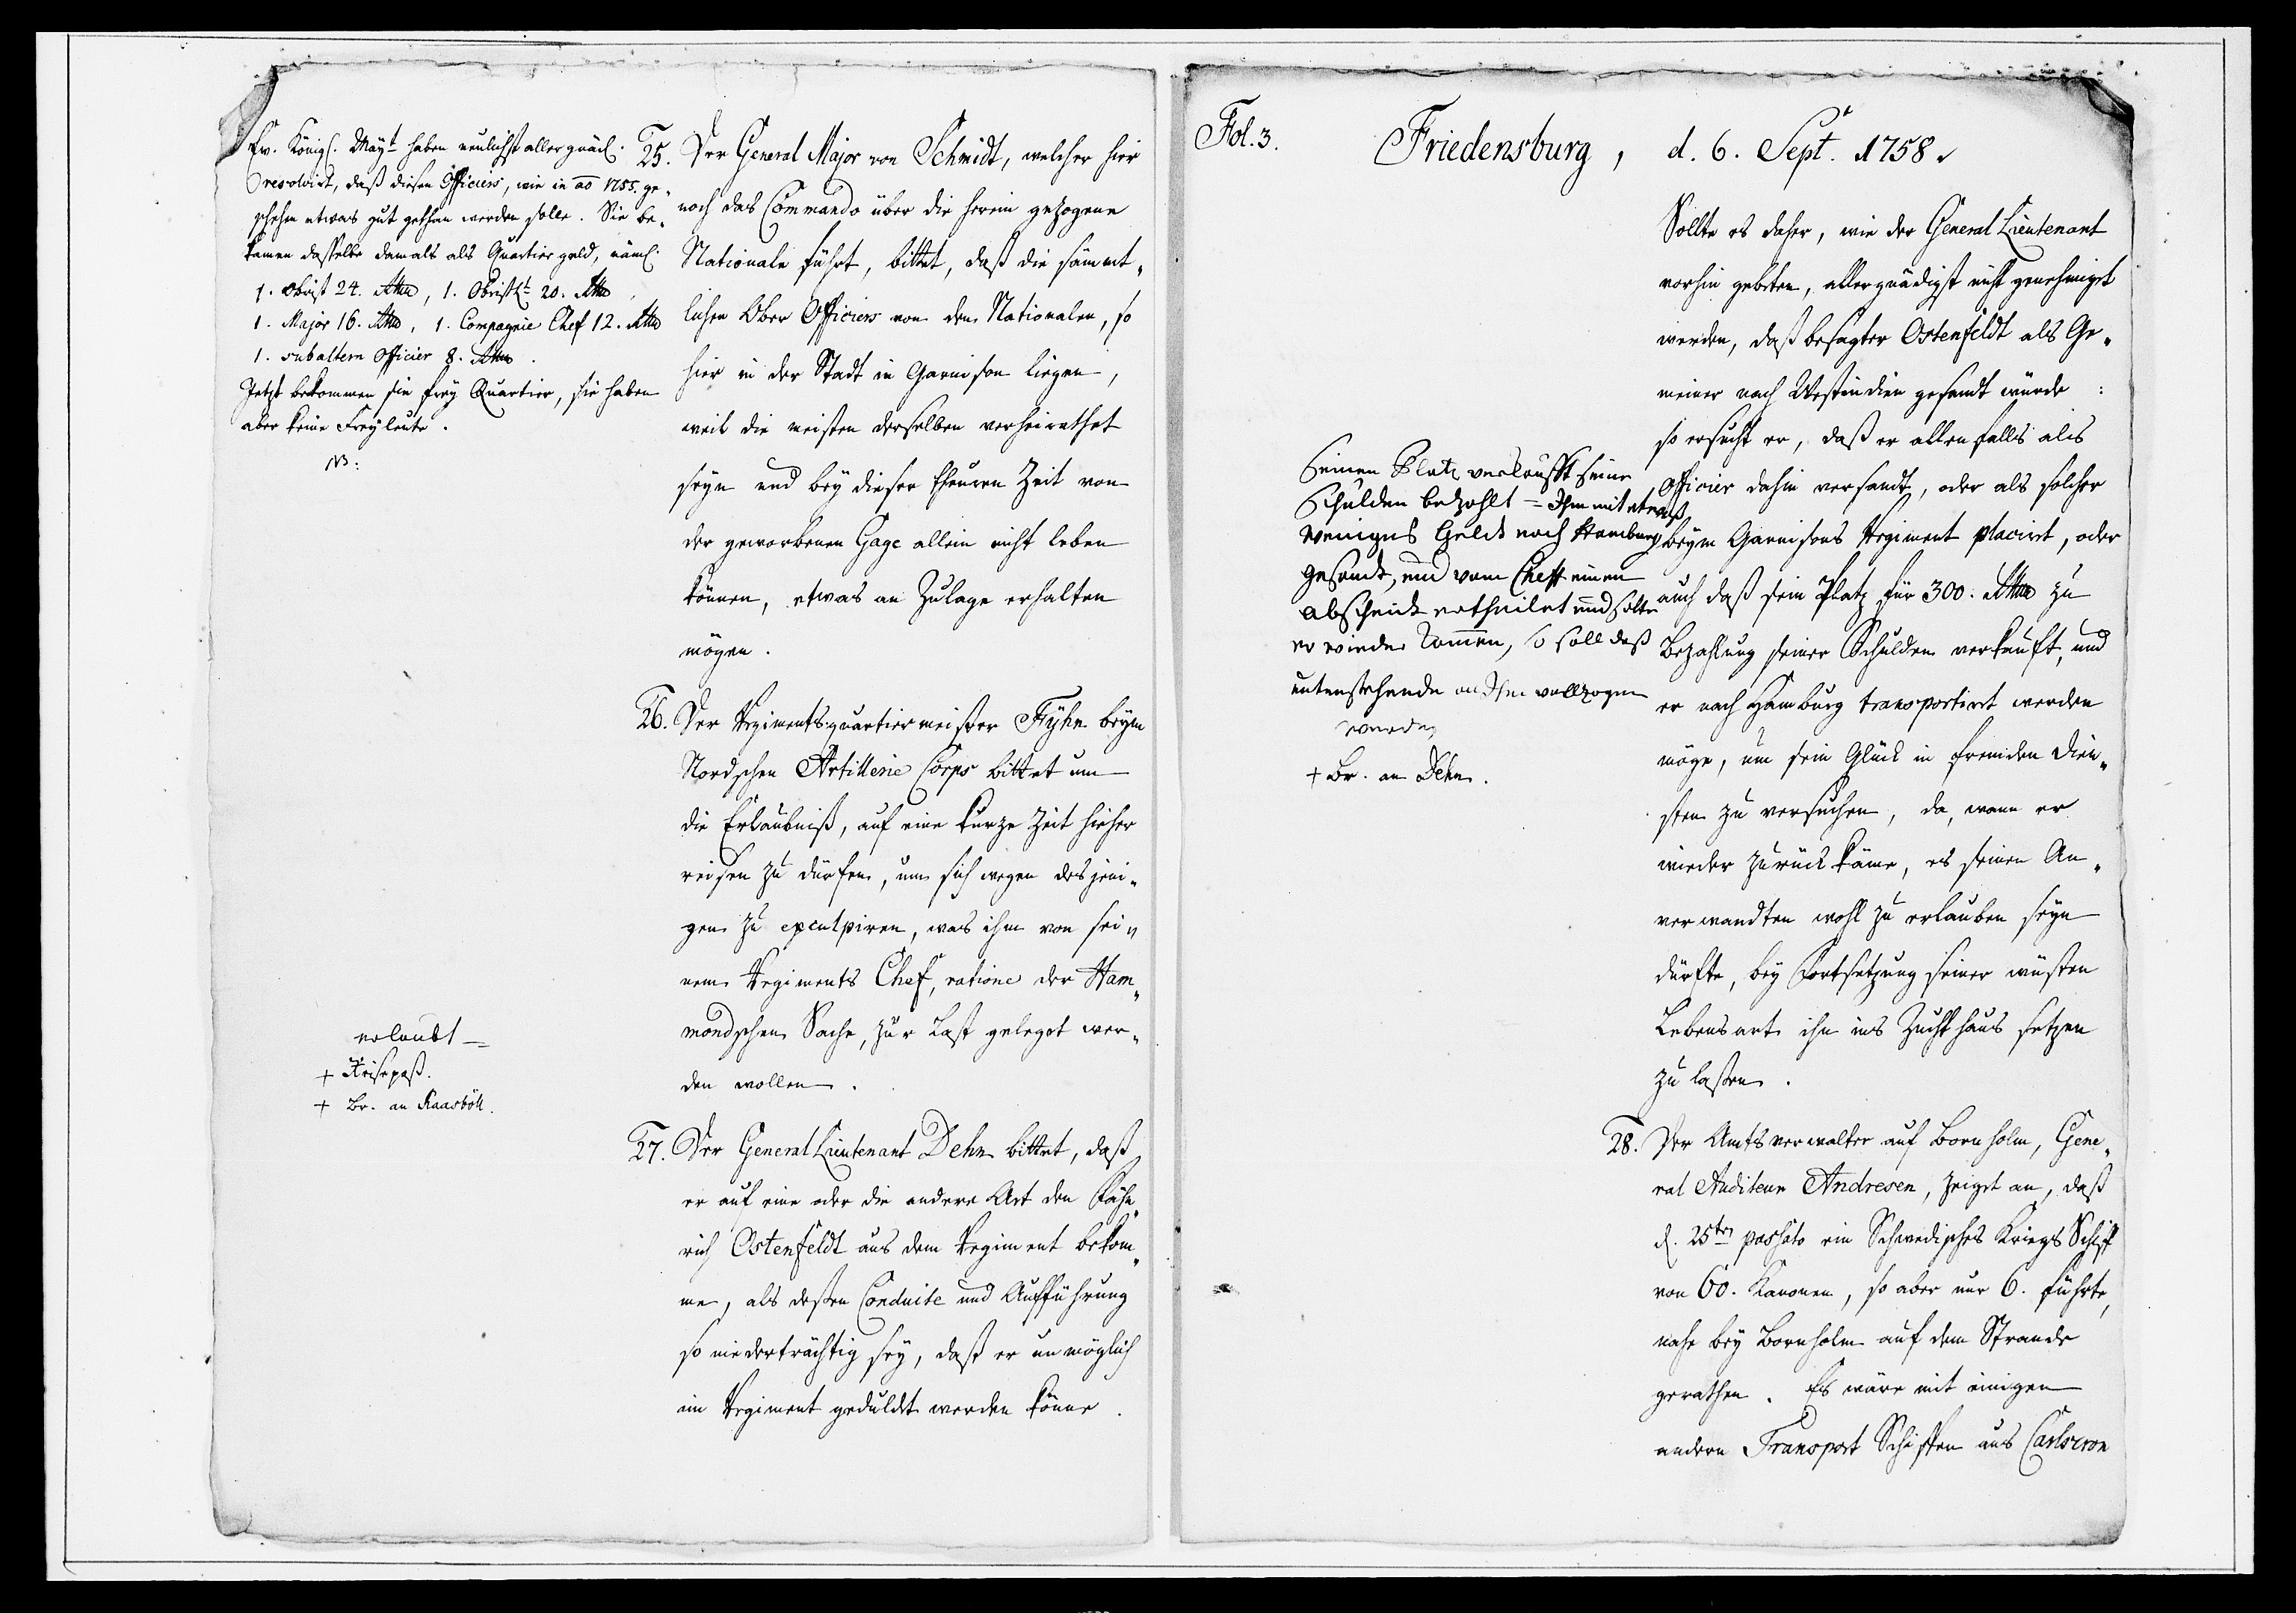 Ew. Königl. Mayt haben neulichst allergnäd.
resolvirt, daß diesen Officiers, wie in ao 1755. ge„
schehen etwas gut gethan werden solle. Sie be„
kamen dasselbe damals als Quartiergeld, näml.
1. Obrist 24. Rthlr, 1. Obristlt 20. Rthlr,
1. Major 16. Rthlr, 1. Compagnie Chef 12. Rthlr
1. subaltern Officier 8. Rthlr.
Jetzt bekommen sie frey Quartier, sie haben
aber keine Freyleute.
NB:
25. Der General Major von Schmidt, welcher hier
noch das Commando über die herein gezogene
Nationale führt, bittet, daß die sämmt„
lichen Ober Officiers von den Nationalen, so
hier in der Stadt in Garnison liegen,
weil die meisten derselben verheirathet
seyn und bey dieser theuren Zeit von
der geworbenen Gage allein nicht leben
können, etwas an Zulage erhalten
mögen.
26. Der Regimentsquartiermeister Fyhn beym
Nordschen Artillerie Corps bittet um
die Erlaubniß, auf eine kurze Zeit hieher
reisen zu dürfen, um sich wegen desjeni„
gen zu exculpiren, was ihm von sei„
nem Regiments Chef, ratione der Ham„
mondschen Sache, zur Last geleget wer„
den wollen.
erlaubt
+ Reisepaß.
+ Br. an Kaasböll.
27. Der General Lieutenant Dehn bittet, daß
er auf eine oder die andere Art den Fähn„
rich Ostenfeldt aus dem Regiment bekom„
me, als deßen Conduite und Aufführung
so niederträchtig sey, daß er unmöglich
im Regiment geduldet werden könne.
Fol. 3.
Friedensburg, d. 6. Sept. 1758.
Sollte es daher, wie der General Lieutenant
vorhin gebeten, allergnädigst nicht genehmigt
werden, daß besagter Ostenfeldt als Ge„
meiner nach Westindien gesandt würde:
so ersucht er, daß er allenfalls als
Officier dahin versandt, oder als solcher
beym Garnisons Regiment placirt, oder
auch daß sein Platz für 300. Rthlr zu
Bezahlung seiner Schulden verkauft, und
er nach Hamburg transportirt werden
möge, um sein Glück in fremden Dien„
sten zu versuchen, da, wann er
wieder zurück käme, es seinen An„
verwandten wohl zu erlauben seyn
dürfte, bey Fortsetzung seiner wüsten
Lebensart ihn ins Zuchthaus setzen
zu laßen.
Seinen Platz verkaufft seine
Schulden bezahlt = Ihm mit etwaß
weniges Geldt nach Hamburg
gesandt, und vom Cheff einen
abscheidt ertheilet und solte
er wieder kommen, so soll daß
untenstehende an Ihm vollzogen
werden
+ Br. an Dehn.
28. Der Amtsverwalter auf Bornholm, Gene„
ral Auditeur Andresen, zeiget an, daß
d. 25ten passato ein Schwedisches Kriegs Schiff
von 60. Kanonen, so aber nur 6. führte,
nahe bey Bornholm auf dem Strande
gerathen. Es wäre mit einigen
andern Transport Schiffen aus Carlscron